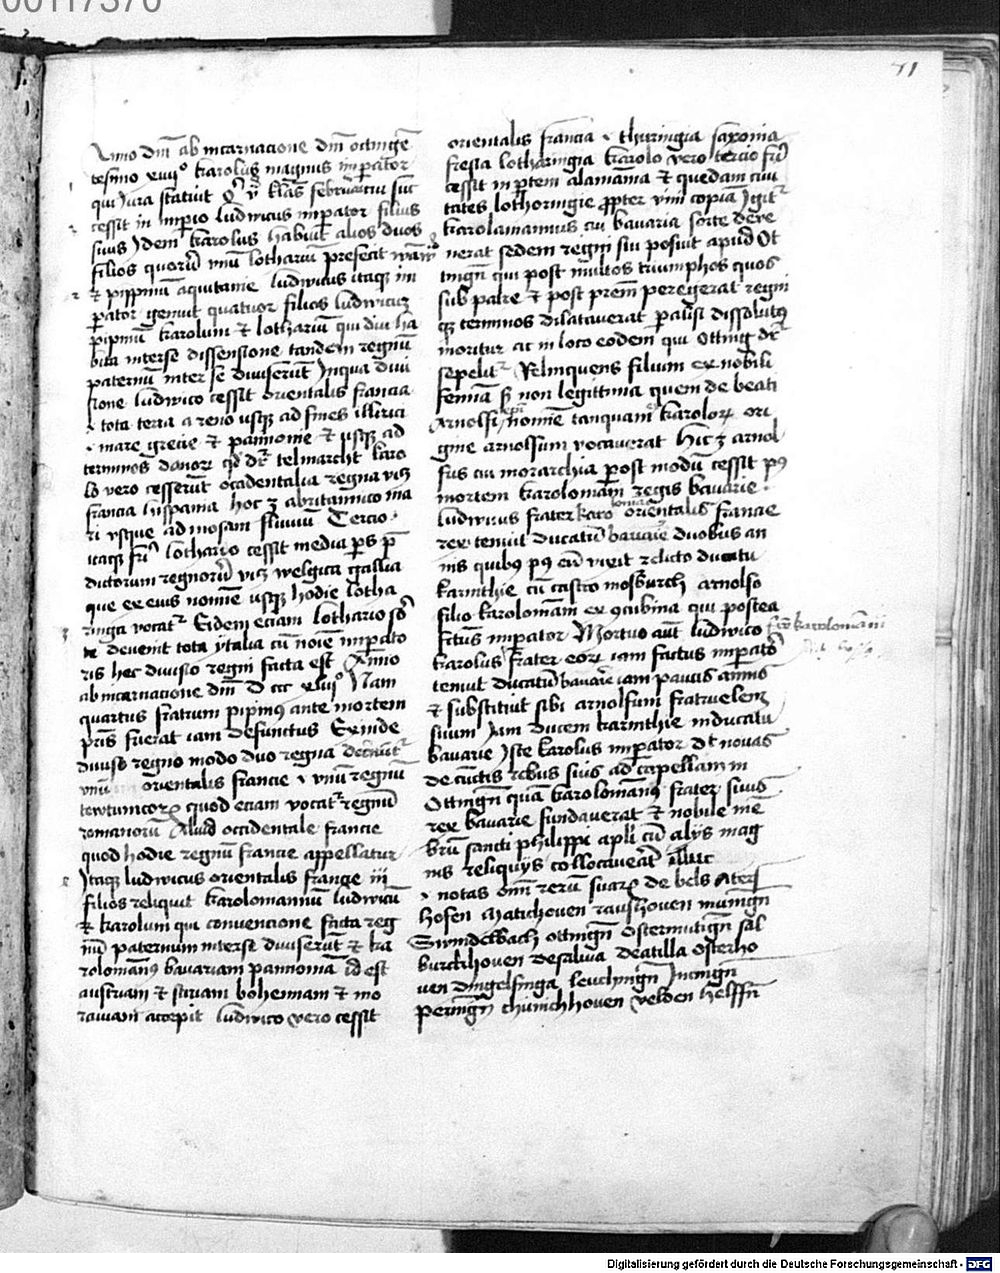 00117376
71
Anno dnī ab incarnacione dnī octinge
tesimo xiiiiº karolus magnus impator
qui Jura statuit kłas februarii suc
cessit in imperio ludwicus impator filius
suus Jdem karolus habuit alios duos
filios quorū vnū lotharium prefecit
et pippinū aquitanie ludwicus itaque im
pator genuit quatuor filios ludwicū
pipinū karolum et lotharium qui diu ha
bita interse dissensione tandem regnū
paternū inter se diuiserūt Jnqua diui
sione ludwico cessit orientalis francia
tota terra a reno usque ad fines illirici
mare grecie et pannonie et usque ad
terminos danorum telmarcht karo
lo vero cesserūt occidentalia regna
francia hispania hoc a britannico ma
ri vsque ad mosam fluuiū Tercio
itaque lothario cessit media pars
dictorum regnorū welgica gallia
que ex eius nomine usque hodie lotha
ringa vocatur Eidem eciam lothario
deuenit tota ytalia cū noīe impato
ris hec diuisio regni facta est Anno
ab incarnacione dnī D ccc xliiiº Nam
quartus fratrum pipinus ante mortem
pris fuerat iam defunctus Exinde
diuiso regno modo duo regna
vnū orientalis francie vnū regnū
tewtunicorum quod eciam vocatur regnū
romanorū Aliud occidentale francie
quod hodie regnū francie appellatur
Jtaque ludwicus orientalis frangie iii
filios reliquit karolomannū ludwicū
et karolum qui conuencione facta reg
nū paternum interse diuiserūt et ka
rolomanus bauariam pannoniā id est
austriam et stiriam bohemiam et mo
rauiam accepit ludwico vero cessit
orientalis francia thuringia saxonia
fresia lotharingia karolo vero tercio
cessit in ptem alamania et quedam ciui
tates lothoringie propter vini copiā Jgitur
karolomannus cui bauaria sorte deue
nerat sedem regni sui posuit apud Ot
tingn qui post multos triumphos quos
sub patre et post prem peregerat regni
que terminos dilatauerat palisi dissolutus
moritur ac in loco eodem qui Otting
sepelitur Relinquens filium ex nobili
femina sed non legittima quem de beati
Arnolfi nomine tanquam karolorum ori
gine arnolfum vocauerat Hic arnol
fus cui monarchia post modū cessit
mortem karolomani regis bauarie
ludwicus frater karo lomani orientalis francie
rex tenuit ducatū bauarie duobus an
nis quibus eū vixit relicto ducatu
karinthie cū castro mosburch arnolfo
filio karolomani ex concubina qui postea
factus impator Mortuo aut ludwico
karolus frater eorum iam factus impator
tenuit ducatū bauarie iam paucis annis
et substituit sibi arnolfum fratruelem
suum Jam ducem karinthie inducatu
bauarie Jste karolus impator nouas
de cunctis rebus suis ad capellam in
Ottingn quā karolomanus frater suus
rex bauarie fundauerat et nobile mē
brū sancti philippi apli cū alijs mag
nis reliquijs collocauerat illuc
notas omī rerū suarum de bels
hofen Matichouen ranshouen muningn
Swindelbach ottingn Ostermutign sal
burckhouen de silua de atilla osterho
uen dingelfinga leuchingn
peringn chunichhouen velden
frater karolomani
Digitalisierung gefördert durch die Deutsche Forschungsgemeinschaft - DFG